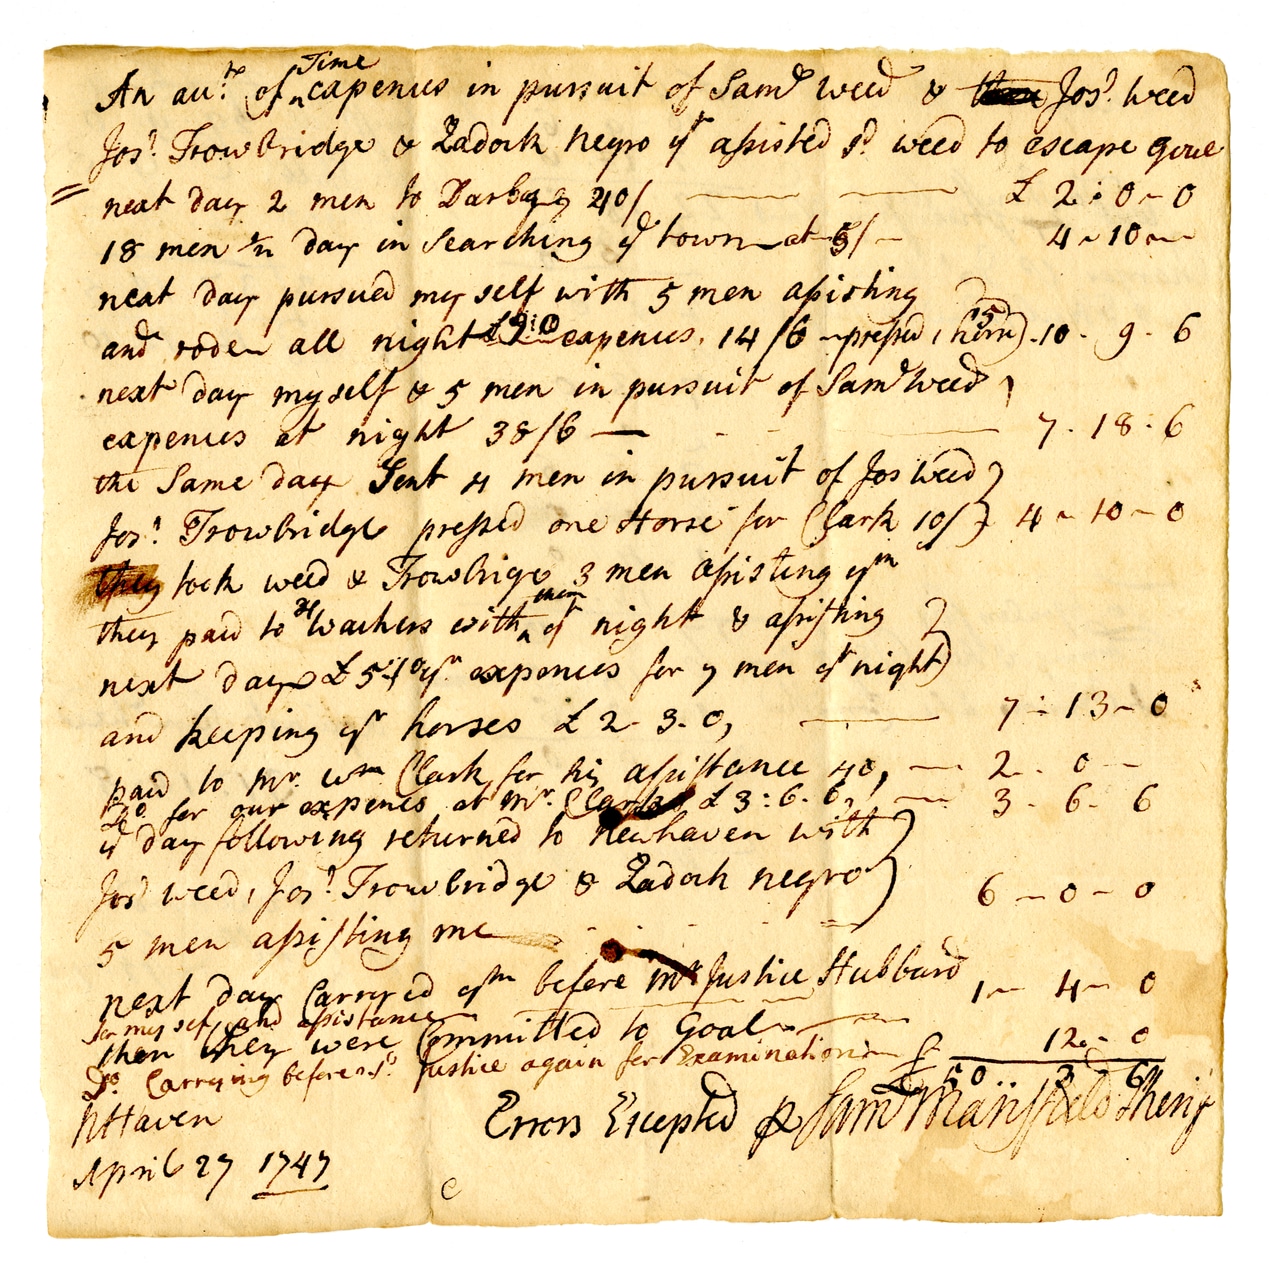 An acct. of Time expences in pursuit of Samll Weed & Jos. Weed
Jos. Trowbridge & Zadock Negro yt assisted sd. weed to escape goal
next day 2 men to Darby 40/ £ 2 : 0 - 0
18 men 1/2 day in Searching ye town at 5/ - 4 - 10 -
next day pursued my self with 5 men assisting
and rode all night expences. 14/6 pressed 1 horse 15/ 10 - 9 - 6
next day myself & 5 men in pursuit of Samll Weed
expences at night 38/6 — 7 - 18 - 6
the Same day Sent 4 men in pursuit of Jos Weed
Jos. Trowbridge pressed one Horse for Clark 10/ 4 - 10 - 0
they took weed & Trowbrige 3 men assisting ym
they paid to 4 Wachers with them yt night & assisting
next day £ 5 : 10 yr expences for 7 men yt night
and keeping ye horses £ 2 - 3 - 0, 7 - 13 - 0
paid to Mr. Wm Clark for his assistance 40, — 2 - 0 -
Do for our expences at Mr. Clarks £ 3 : 6 - 6, — 3 - 6 - 6
ye day following returned to Newhaven with
Jos weed, Jos. Trowbridge & Zadock negro 6 - 0 - 0
5 men assisting me
next day Carryed ym before Mr Justice Hubbard 1 - 4 - 0
for my self and assistance
then they were Committed to Goal
Do. Carrying before sd. Justice again for Examination 12 - 0
£ 50 3 6
NHaven Errors Excepted pr Samll Mansfield Sheriff
April 27 1747